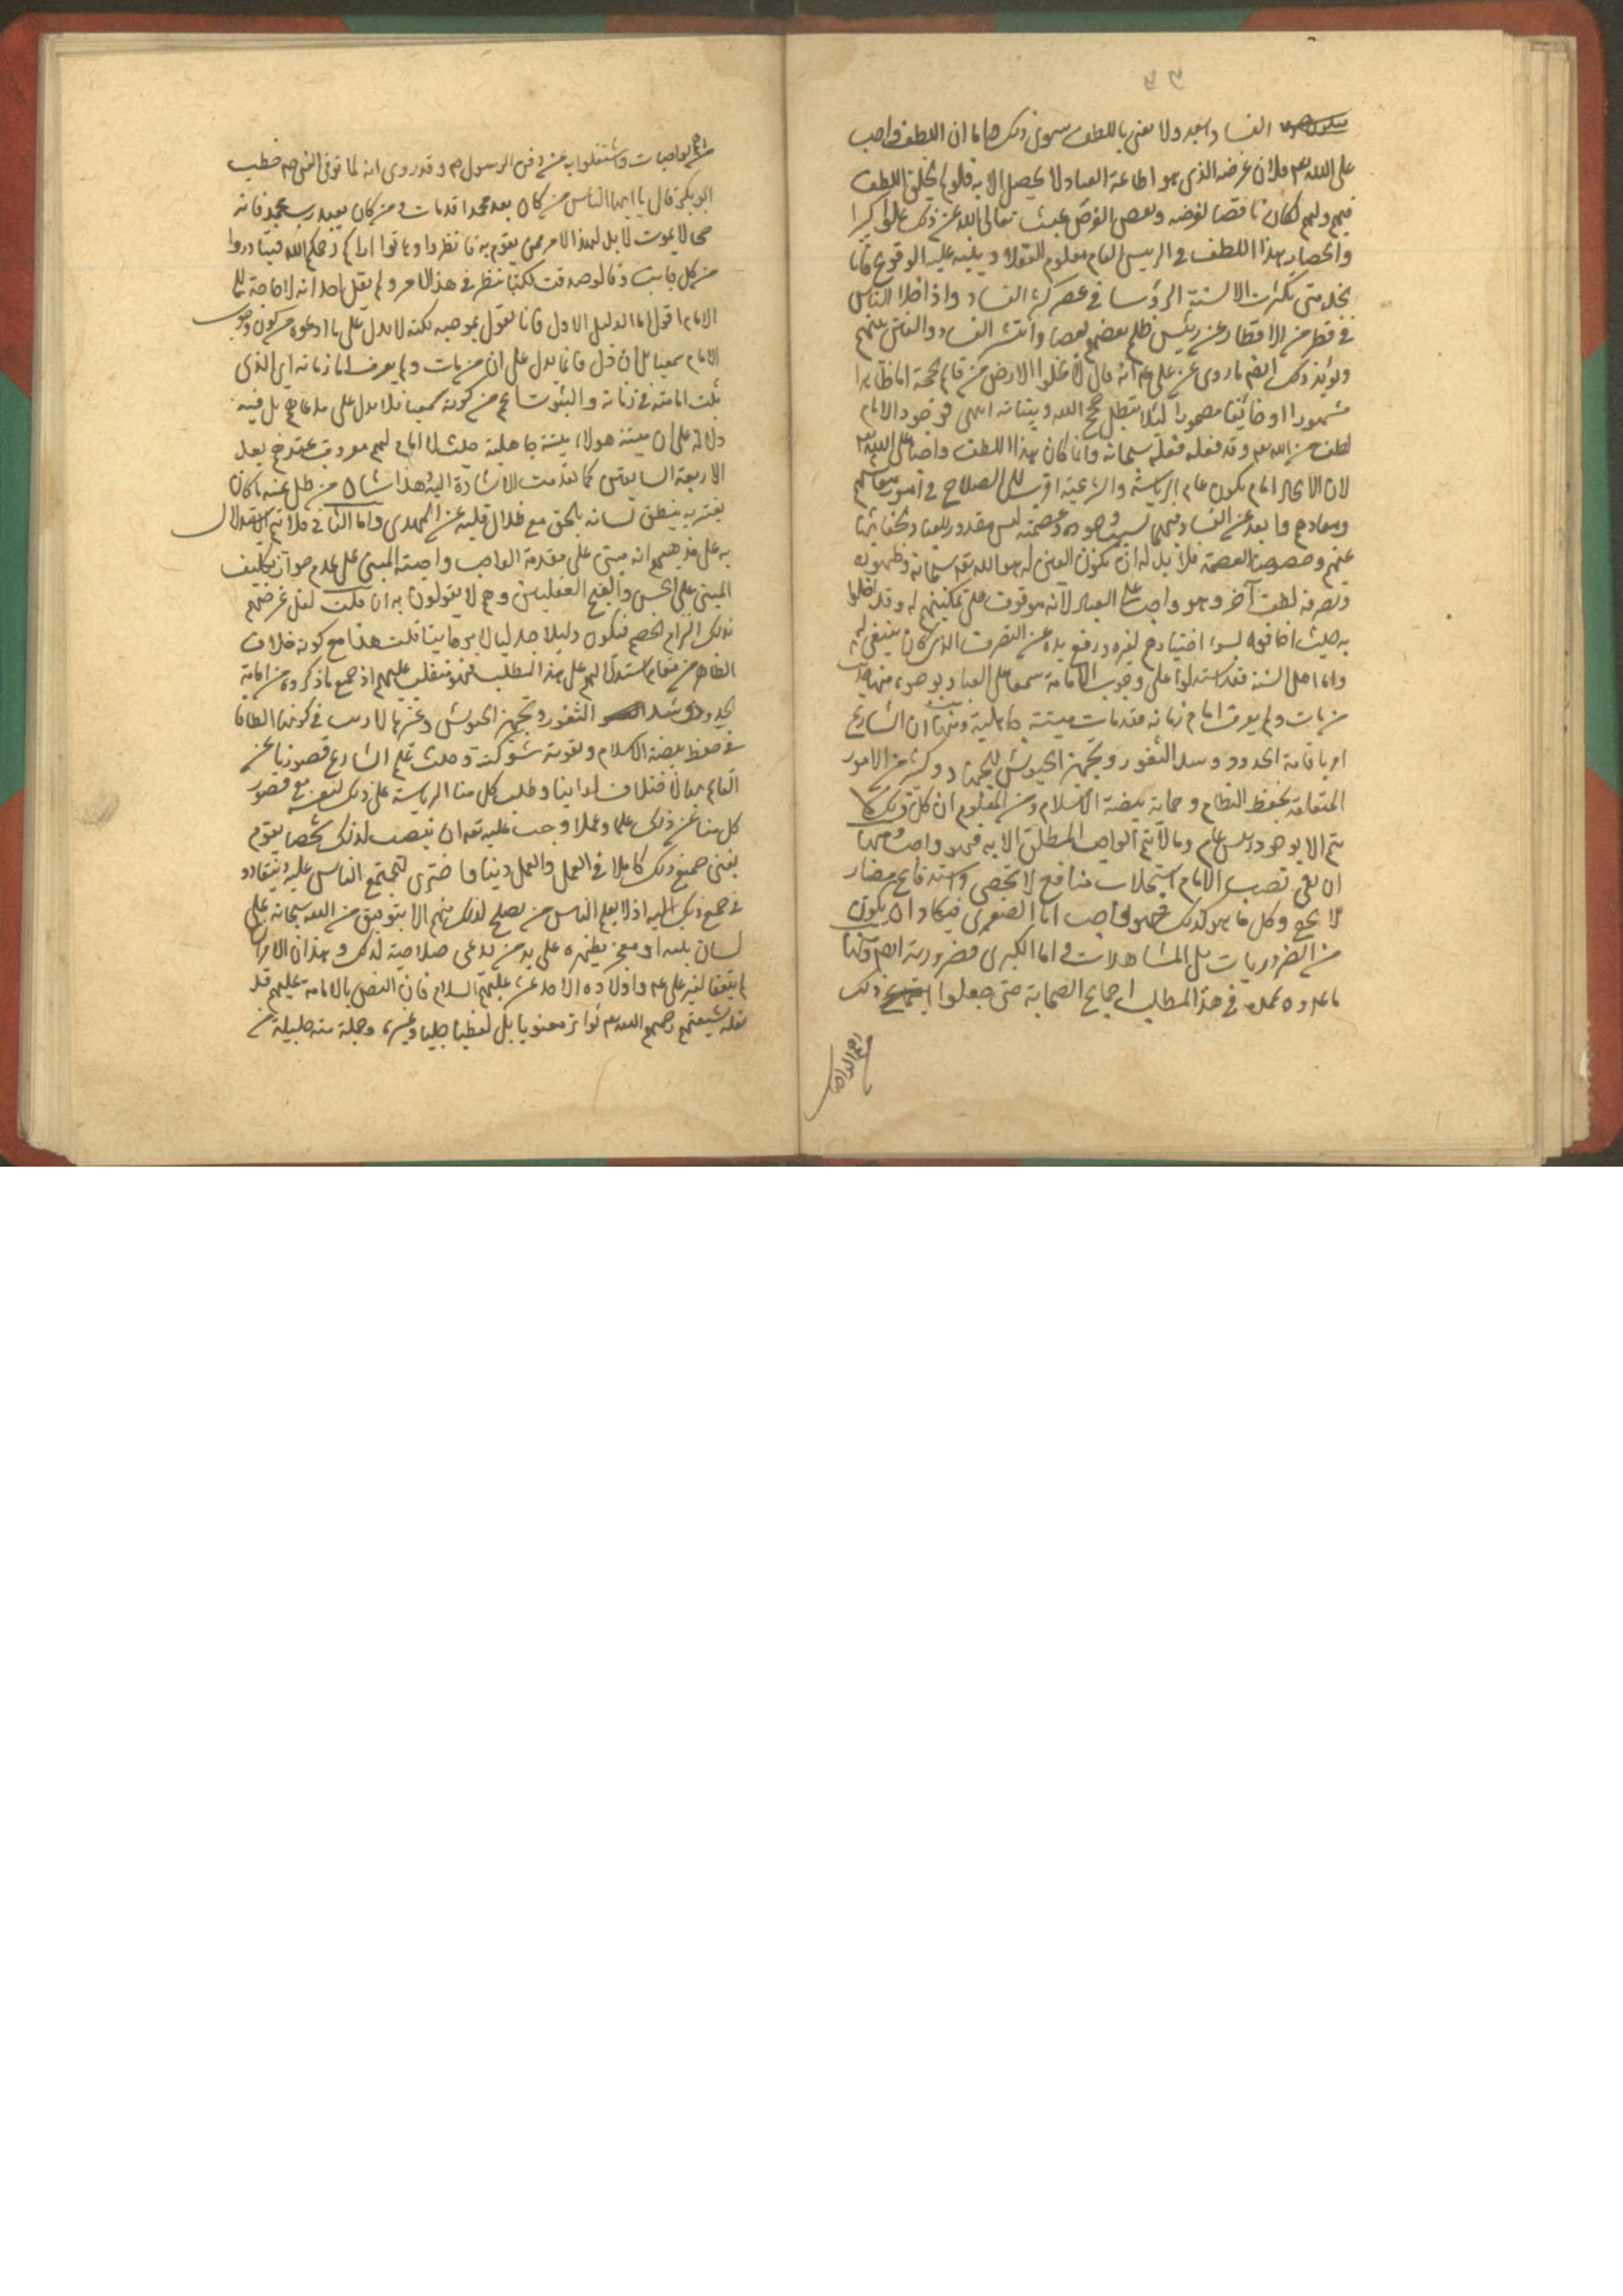 ٤٣
الفساد ابعد ولا نعنى باللطف سوى ذلك واما ان اللطف واجب
على الله تعم فلان غرضه الذى هو اطاعة العباد لا يحصل الا به فلو لم يخلق اللطف
فيهم ولهم لكان ناقضا لغرضه ونقض الغرض عبث تعالى الله عن ذلك علوا كبيرا
وانحصار هذا اللطف فى الرئيس العام معلوم للعقلاء وينبه عليه الوقوع فانا
نجد متى تكثرت الرؤسا فى عصر كثر الفساد واذا خلا الناس
فى قطر من الاقطار عن رئيس ظلم بعضهم بعضا وانتشر الفساد والفتن بينهم
ويؤيد ذلك ايضم ما روى عن على عم انه قال لا تخلوا الارض من قائم بحجة اما ظاهرا
مشهورا او خائفا مغمورا لئلا تبطل حجج الله وبيناته انتهى فوجود الامام
لطف من الله تعم وقد فعله سبحانه وانما كان هذا اللطف واجبا على الله تعم
لان الامام يكون عام الرياسة والرعية اقرب الى الصلاح فى امور معاشهم
ومعادهم وابعد عن الفساد فيهما بسبب وجوده وعصمته ليس مقدور للعباد لخفائها
عنهم وخصوصا العصمة فلا بد له ان يكون المعين له هو الله تعم سبحانه وظهوره
وتصرفه لطف آخر وهو واجب على العباد لانه موقوف على تمكينهم له وقد اخلوا
به حيث اخافوه لسوء اختيارهم لغيره ورفع يده عن التصرف الذى كان ينبغى له
واما اهل السنة فقد استدلوا على وجوب الامامة سمعا على العباد بوجوه منها حديث
من مات ولم يعرف امام زمانه فقد مات ميتة جاهلية ومنها ان الشارع
امر باقامة الحدود وسد الثغور وتجهيز الجيوش للجهاد وكثير من الامور
المتعلقة بحفظ النظام وحماية بيضة الاسلام ومن المعلوم ان كل ذلك لا
يتم الا بوجود رئيس عام وما لا يتم الواجب المطلق الا به فهو واجب ومنها
ان فى نصب الامام استجلاب منافع لا تحصى واستدفاع مضار
لا تخفى وكل ما هو كذلك فهو واجب اما الصغرى فيكاد ان يكون
من الضروريات بل المشاهدات واما الكبرى فضرورية ايضم ومنها
ما عدوه عمدة فى هذا المطلب اجماع الصحابة حتى جعلوا ذلك
اهم الواجبا
من اهم الواجبات واشتغلوا به عن دفن الرسول ص وقد روى انه لما توفى النبى ص خطب
ابو بكر فقال يا ايها الناس من كان يعبد محمدا فقد مات ومن كان يعبد رب محمد فانه
حى لا يموت لا بد لهذا الامر ممن يقوم به فانظروا وهاتوا اراءكم رحمكم الله فتبادروا
من كل جانب وقالوا صدقت لكنا ننظر فى هذا الامر ولم يقل احد انه لا حاجة لنا الى
الامام اقول اما الدليل الاول فانا نقول بموجبه لكنه لا يدل على ما ادعوه من كون وجوب
الامام سمعيا بل ان دل فانما يدل على ان من مات ولم يعرف امام زمانه اى الذى
ثبت امامته فى زمانه والثبوت اعم من كونه سمعيا فلا يدل على مدعاهم بل فيه
دلالة على ان ميتة هولاء ميتة جاهلية حيث لا امام لهم معروف عندهم بعد
الاربعة السابقين كما تقدمت الاشارة اليه وهذا شان من ضل عنه ما كان
يفتريه ينطق لسانه بالحق مع ضلال قلبه عن المهدى واما الثانى فلا يتم الاستدلال
به على مذهبهم انه مبنى على مقدمة الواجب واجبة المبنى على عدم جواز تكليف
المبنى على الحسن والقبح العقليين وهم لا يقولون به ان قلت لعل غرضهم
بذلك الزام الخصم فيكون دليلا جدليا لا برهانيا قلت هذا مع كونه خلاف
الظاهر من مقام استدلالهم على هذا المطلب فهو منقلب عليهم اذ جميع ما ذكروه من اقامة
الحدود وسد الثغور وتجهيز الجيوش وغيرها لا ريب فى كونها الطافا
فى حفظ بيضة الاسلام وتقوية شوكته وحيث علم الشارع قصورنا عن
القيام بها لاختلاف اراينا وطلب كل منا الرياسة على ذلك لنفسه مع قصور
كل منا عن ذلك علما وعملا وجب عليه تعم ان ينصب لذلك شخصا يقوم
بغنى جميع ذلك كاملا فى العلم والعمل دينا واخرى لتجتمع الناس عليه وينقادوا
فى جميع ذلك اليه اذ لا يعلم الناس من يصلح لذلك منهم الا بتوفيق من الله سبحانه على
لسان نبيه او معجز يظهره على يد من يدعى صلاحية لذلك وهذان الامران
لم يتفقا لغير على عم واولاده الاحد عشر عليهم السلام فان النص بالامامة عليهم قد
نقله شيعتهم رحمهم الله تعم تواتر معنويا بل لفظيا جليا وغيره وجملة منه جليلة من